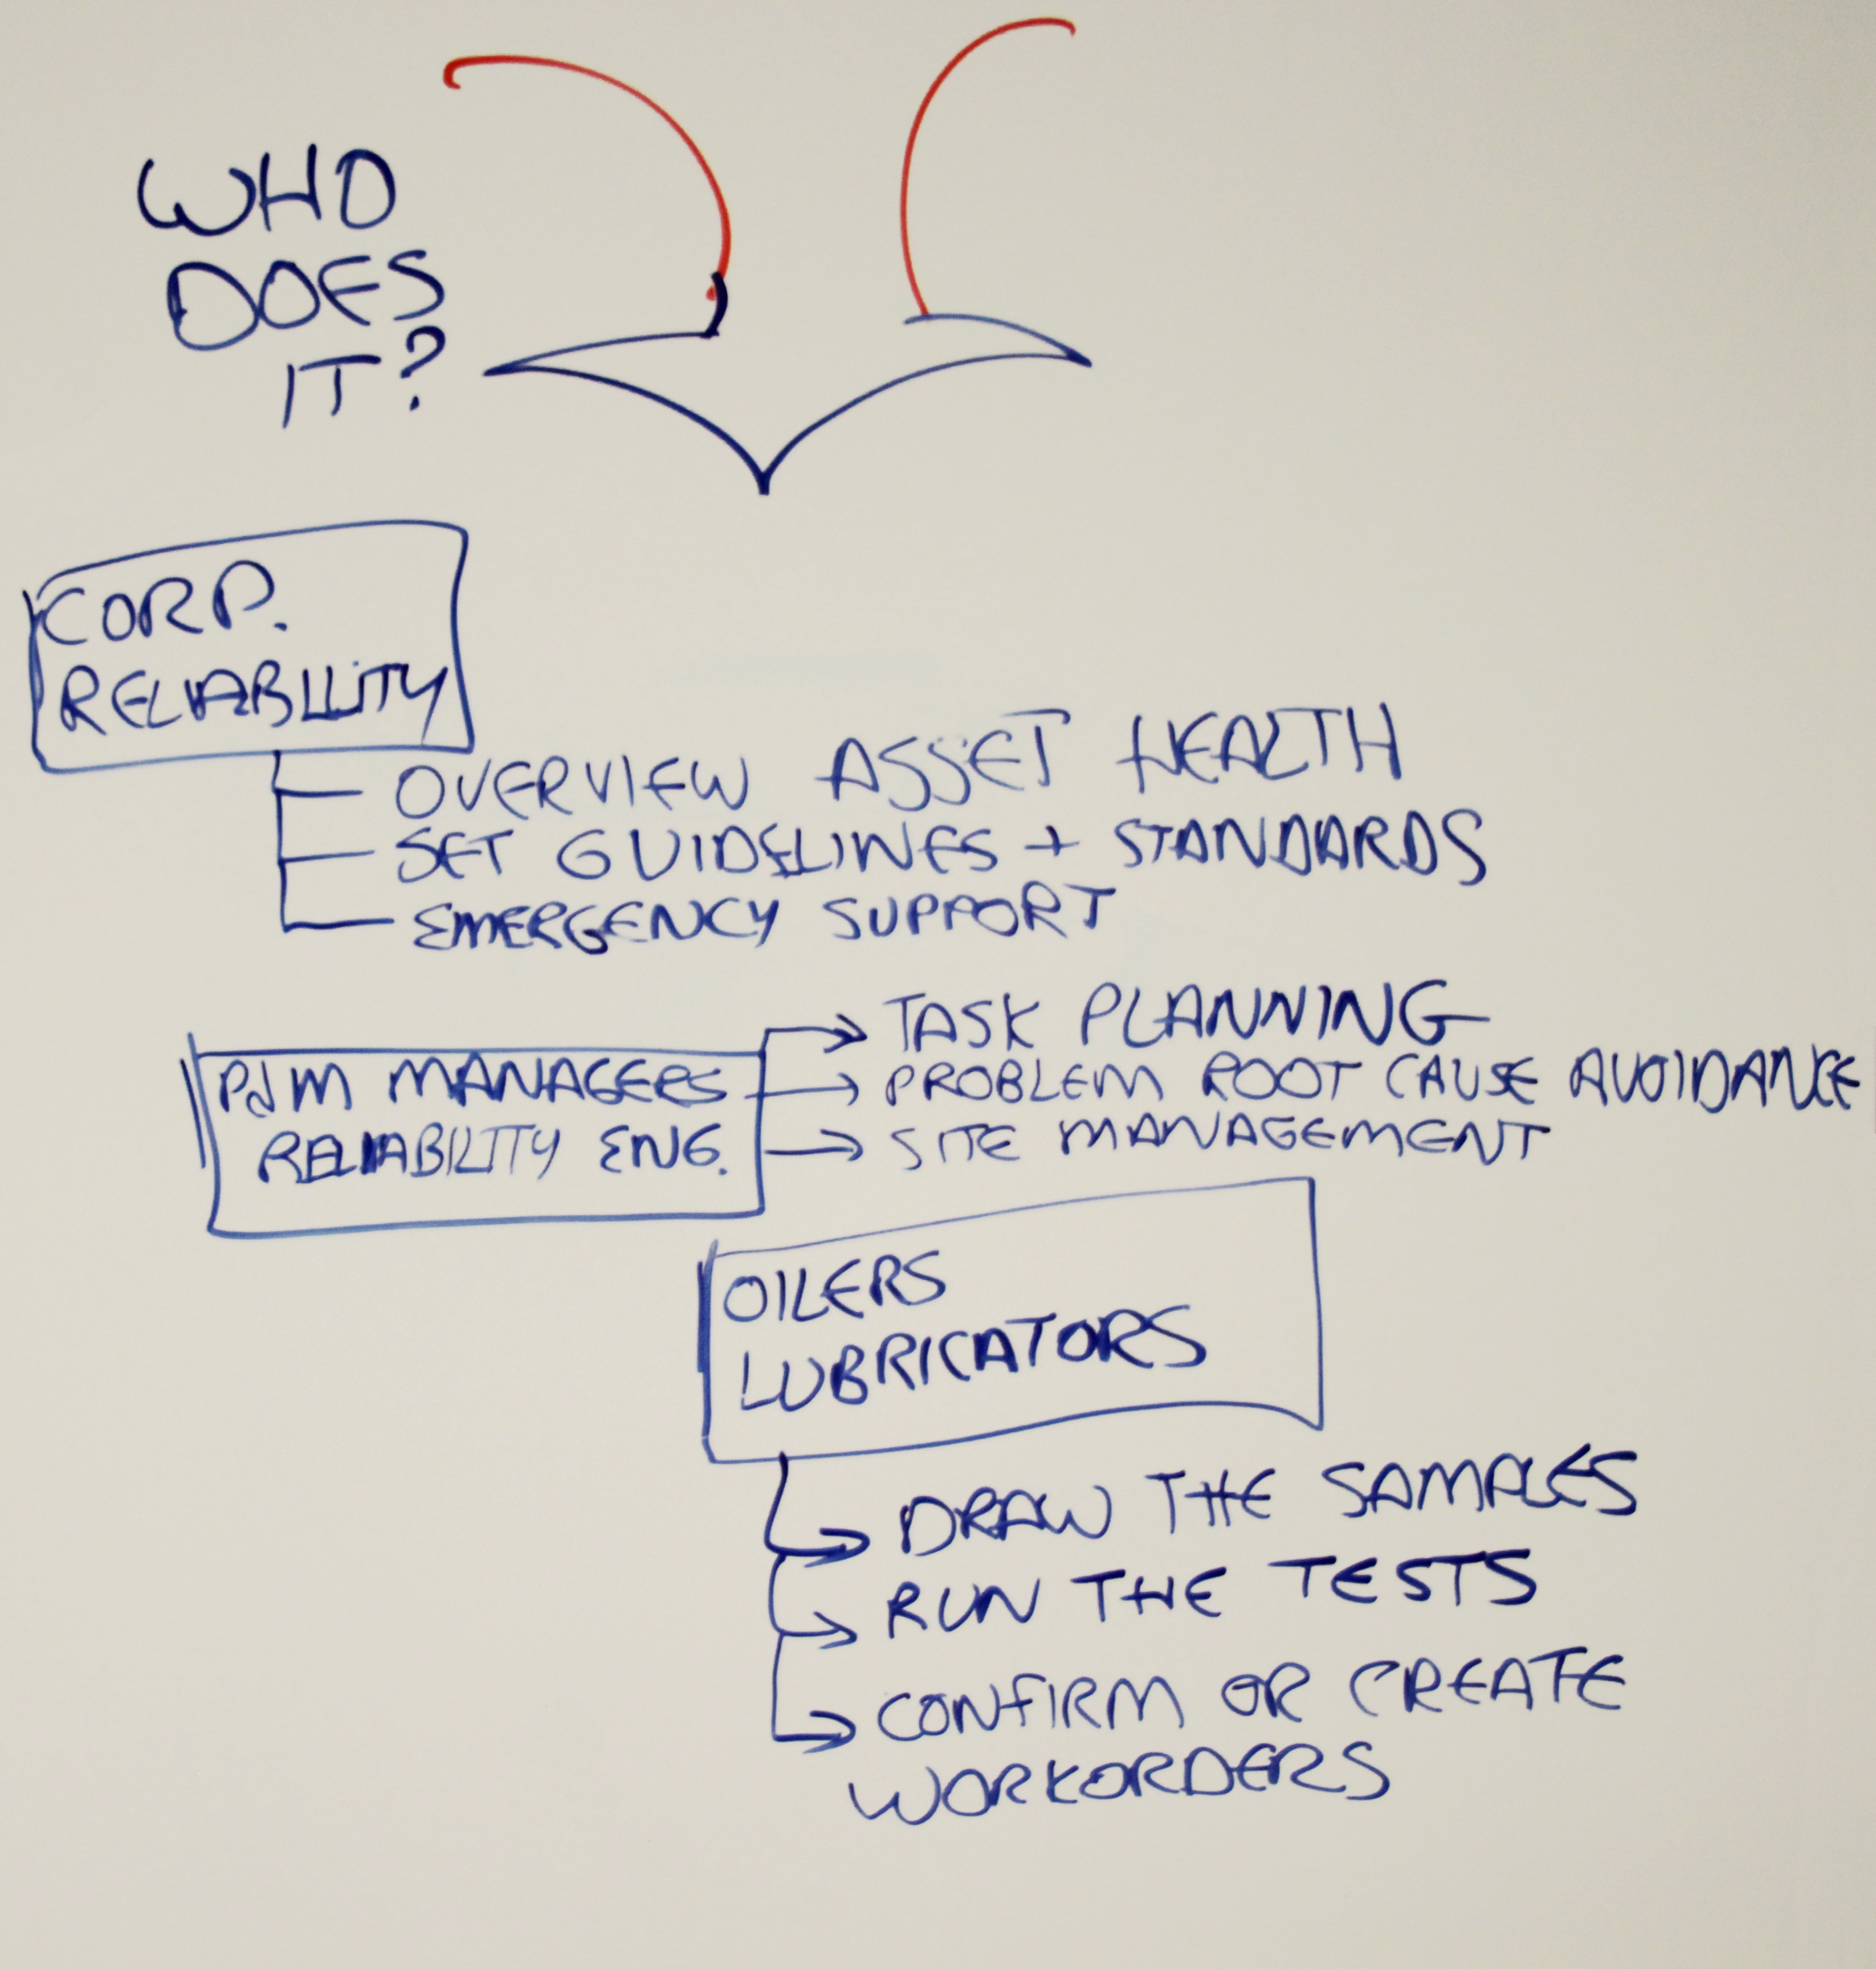 WHO
DOES
IT?
CORP.
RELIABILITY
OVERVIEW ASSET HEALTH
SET GUIDELINES + STANDARDS
EMERGENCY SUPPORT
PdM MANAGERS
RELIABILITY ENG.
TASK PLANNING
PROBLEM ROOT CAUSE AVOIDANCE
SITE MANAGEMENT
OILERS
LUBRICATORS
DRAW THE SAMPLES
RUN THE TESTS
CONFIRM OR CREATE
WORKORDERS